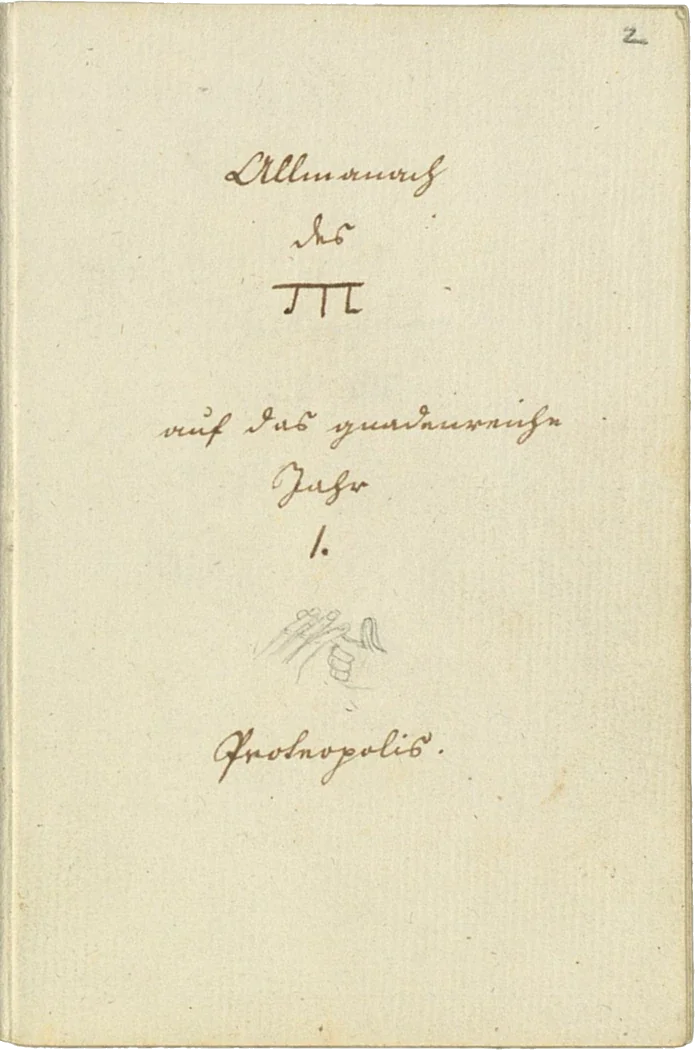 2
Allmanach
des
auf das gnadenreiche
Jahr
1.
Proteopolis.